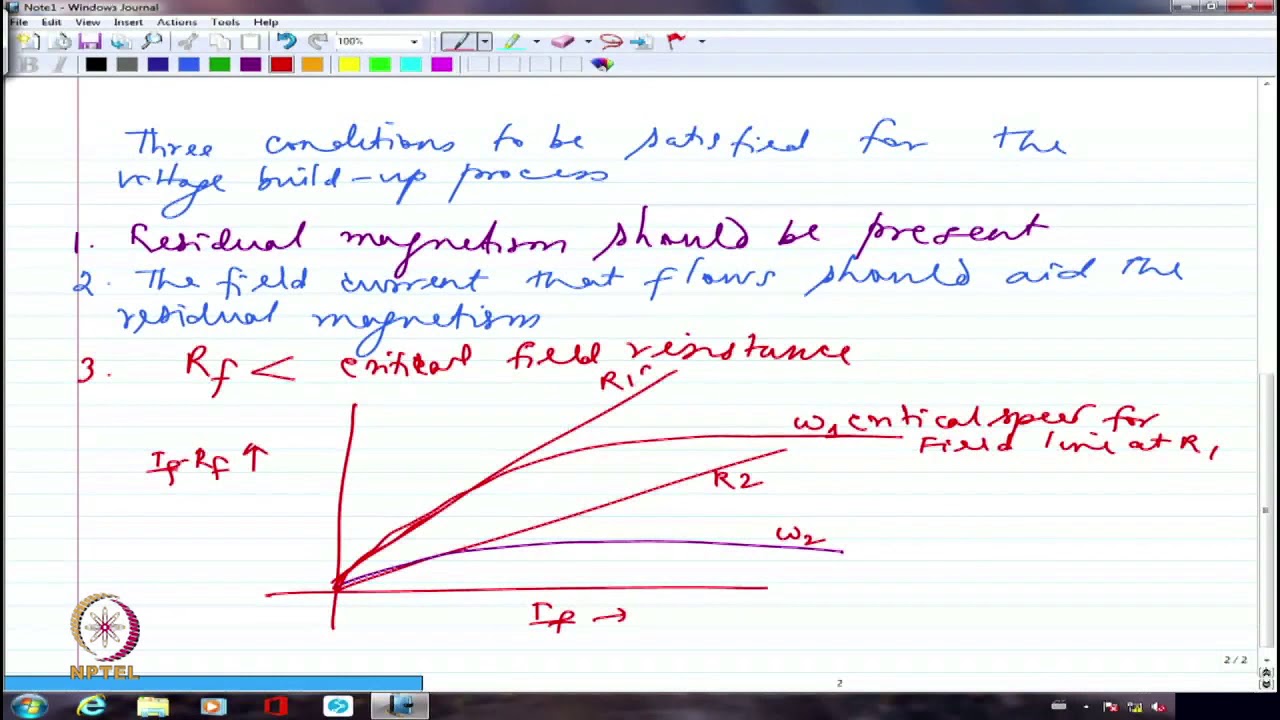 Note1 - Windows Journal
File Edit View Insert Actions Tools Help
100%
B I
Three conditions to be satisfied for the
voltage build-up process
1. Residual magnetism should be present
2. The field current that flows should aid the
residual magnetism
3. Rf < critical field resistance
R1
ω1 critical speed for
Field line at R1
If-Rf ↑
R2
ω2
If →
NPTEL
2 / 2
2